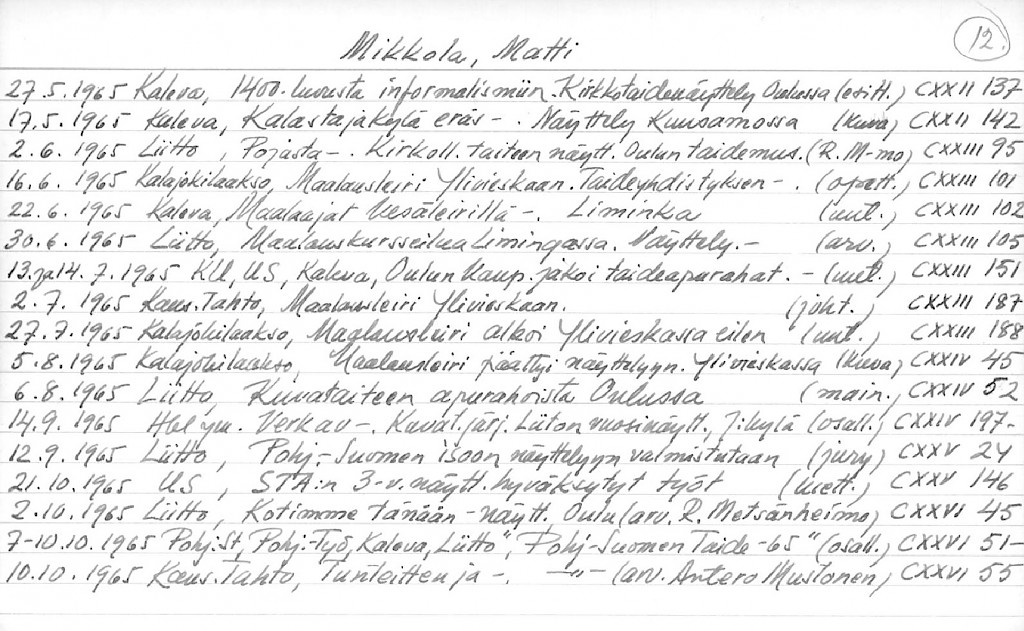 12.
Mikkola, Matti
27.5.1965 Kaleva, 1400-luvusta informalismiin. Kirkkotaidenäyttely Oulussa (esitt.) CXXII 137
17.5.1965 Kaleva, Kalastajakylä eräs -. Näyttely Kuusamossa (kuva) CXXII 142
2.6. 1965 Liitto, Pojasta -. Kirkoll. taiteen näytt. Oulun taidemus. (R. M-mo) CXXIII 95
16.6. 1965 Kalajokilaakso, Maalausleiri Ylivieskaan. Taideyhdistyksen -. (opett.) CXXIII 101
22.6. 1965 Kaleva, Maalaajat kesäleirillä -. Liminka (uut.) CXXIII 102
30.6. 1965 Liitto, Maalauskursseilua Limingassa. Näyttely. - (arv.) CXXIII 105
13. ja 14. 7. 1965 KU, US, Kaleva, Oulun kaup. jakoi taideapurahat. - (uut.) CXXIII 151
2.7. 1965 Kans. Tahto, Maalausleiri Ylivieskaan. (joht.) CXXIII 187
27.7. 1965 Kalajokilaakso, Maalausleiri alkoi Ylivieskassa eilen (uut.) CXXIII 188
5.8. 1965 Kalajokilaakso, Maalausleiri päättyi näyttelyyn. Ylivieskassa (kuva) CXXIV 45
6.8. 1965 Liitto, Kuvataiteen apurahoista Oulussa (main.) CXXIV 52
14.9. 1965 Hbl ym. Verkav -. Kuvat. järj. Liiton vuosinäytt., J:kylä (osall.) CXXIV 197-
12.9. 1965 Liitto, Pohj.-Suomen isoon näyttelyyn valmistutaan (jury) CXXV 24
21.10. 1965 US, STA:n 3-v. näytt. hyväksytyt työt (luett.) CXXV 146
2.10. 1965 Liitto, Kotimme tänään - näytt. Oulu (arv. R. Metsänheimo) CXXVI 45
7-10.10. 1965 Pohj. St, Pohj. Työ, Kaleva, Liitto", "Pohj-Suomen Taide -65" (osall.) CXXVI 51-
10.10. 1965 Kans. Tahto, Tunteitten ja -. -"- (arv. Antero Mustonen) CXXVI 55